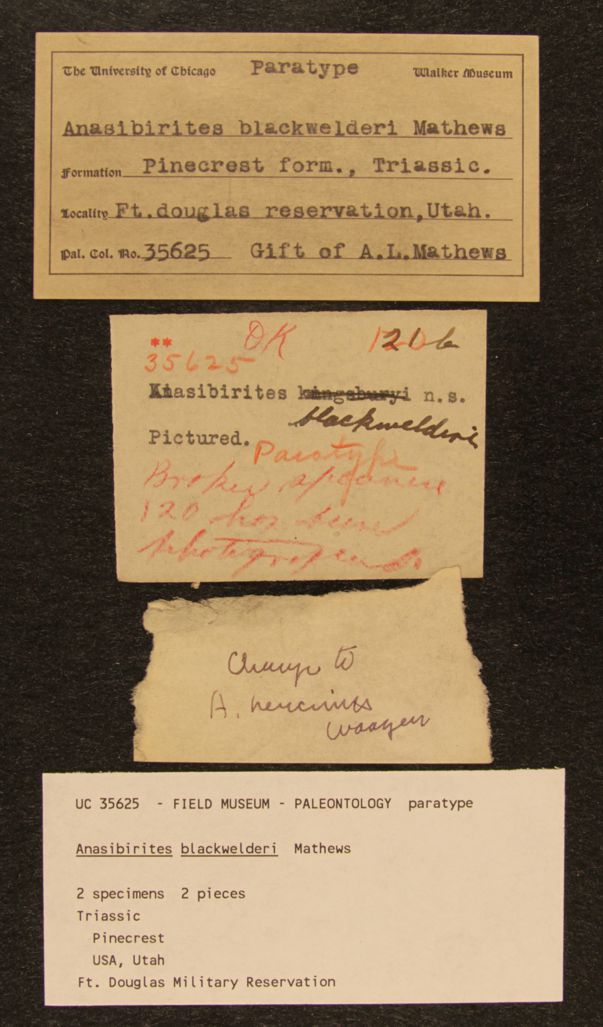 The University of Chicago Paratype Walker Museum
Anasibirites blackwelderi Mathews
Formation Pinecrest form., Triassic.
Locality Ft.douglas reservation,Utah.
Pal. Col. No. 35625 Gift of A.L.Mathews
** OK
35625
Anasibirites kingsburyi n.s.
blackwelderi
Pictured.
Paratype
Broken specimen
120 has been
photographed
Change to
A.
Waagen
UC 35625 - FIELD MUSEUM - PALEONTOLOGY paratype
Anasibirites blackwelderi Mathews
2 specimens 2 pieces
Triassic
Pinecrest
USA, Utah
Ft. Douglas Military Reservation